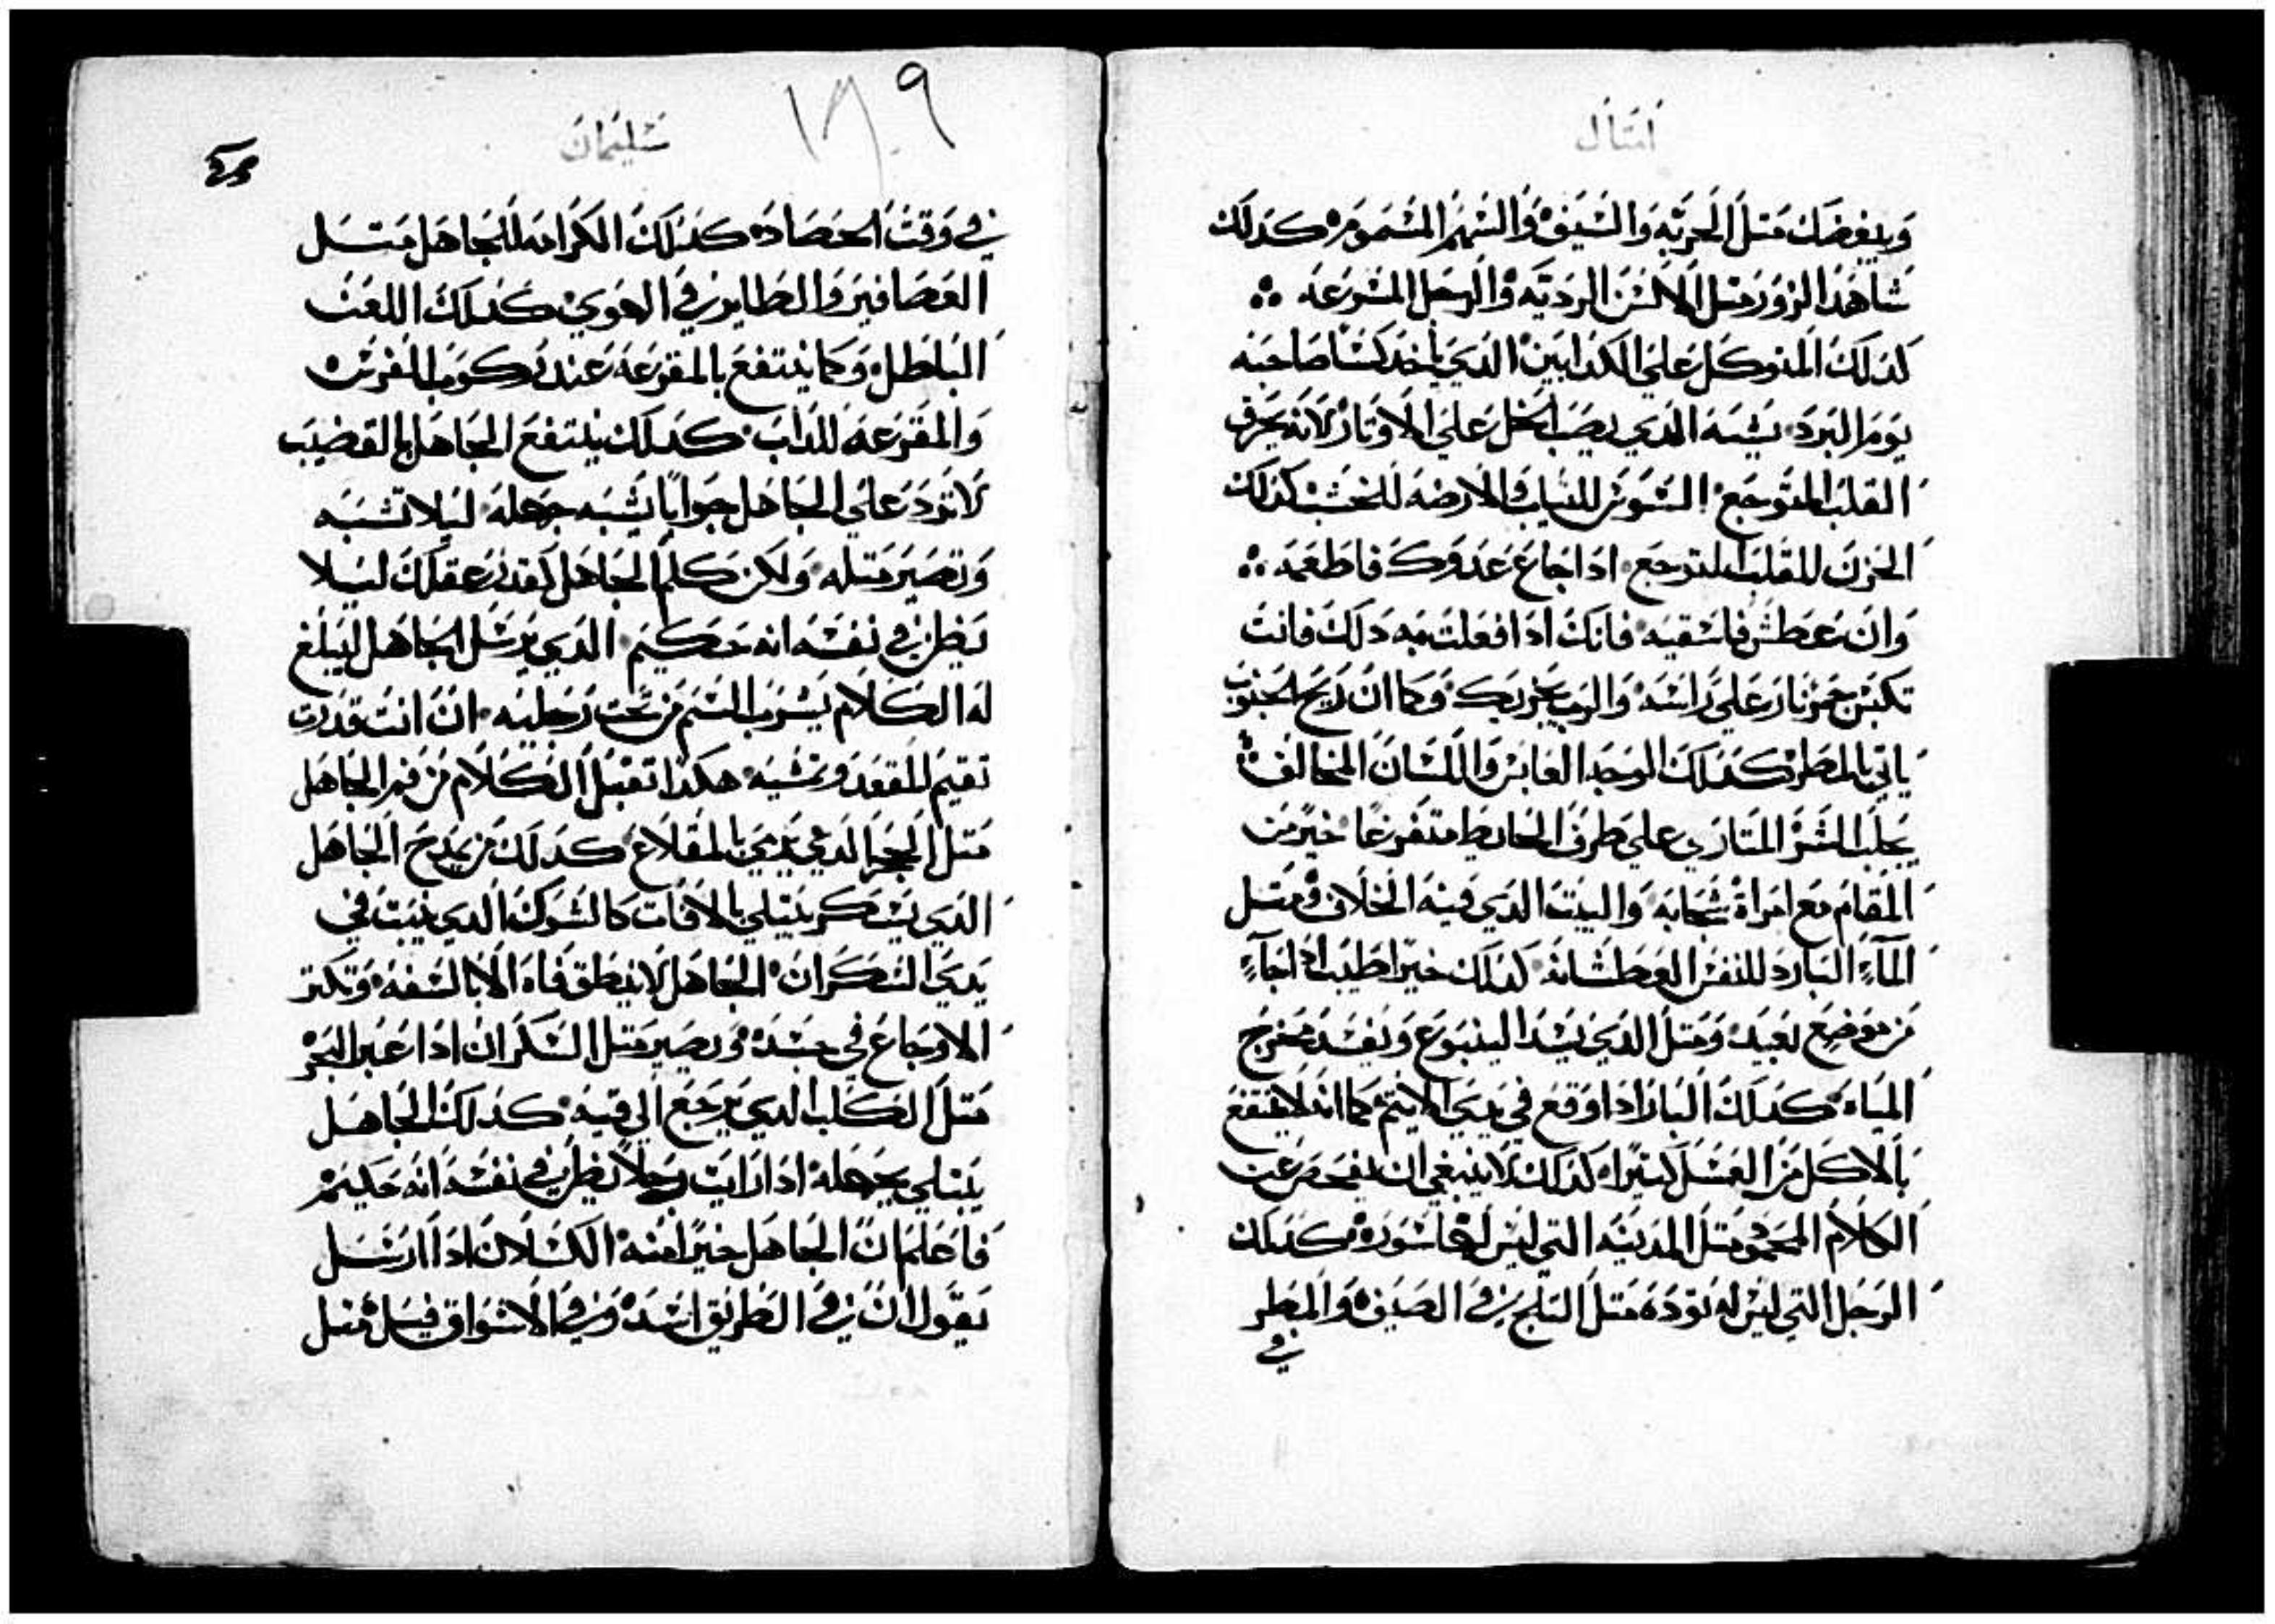 امتال
وَيبغضك مَتل الحَربَه وَالسَيف وَالسَهم المسَموَم كَدلَك
شاهَد الزوَر مَتل الالسَن الرديَه وَالرجل المسَرعَه
كدلَك المتوكل عَلي الكدابين الدَي ياخد كسَا صَاحبَه
يَومَ البَردَ يشبَه الدي يصَب الخل عَلي الاوتار لانَه يحَرق
القلب المتوجَع السَوس للتياب والارضَه للخشب كدلك
الحَزن للقلب المتوجَع ادا جَاعَ عَدوكَ فاطعَمَه
وَان عَطش فاسَقيَه فانكَ ادا فعَلت به دَلكَ فانتَ
تكبس جَمر نار عَلي رَاسَه وَالرب يجزيك وَكما ان ريَح الجنوب
ياتي بالمطر كدَلكَ الوجَه العَابس وَاللسَان المخالف
يَجلَب الشَر المتازي علي طرف الحايط متفرغا خيَر من
المقام مَع امَراة سَخابَه وَالبيَت الدَي فيَه الخلاف وَمَتل
المآء البَارد للنفس العَطشانَه كدلك خبَر اطيَب ادا جَآء
مَن موضع بَعيَد وَمَتل الدَي يَسَد الينبوَع وَيفسَد مَخرج
المياه كدَلَكَ البَار ادا وَقع في يَدي الايتم كما انَه لا ينتفع
بَالاكل مَن العسَل كتيرَا كدلك لا ينبغي ان يفحَص عَن
الكلام المحمود مَتل المَدينَه التي ليس لهَا سَورَه كدَلَك
الرَجل التي ليس له تودَه مَتل التلج في الصَيَف وَالمَطر
في
سَليمَان
١٨٩
في وَقت الحصَاد كدَلَك الكرَامه للجَاهَل مَتـل
العَصَافيَر وَالطاير في الهوَي كدَلَك اللعَن
البَاطل وَكما ينتفعَ بالمقرعَه عَند رَكوب الفرس
وَالمقرَعَه للدَاب كدَلَك ينتفع الجَاهَل بالقضيَب
لاترَد عَلي الجَاهَل جَوابَا يشبَه جَهله ليلا تشبَه
وَتصيَر مَتله وَلكن كلم الجَاهَل كقدر عَقلَك ليَلا
يَظن في نفسَه انه حَكيم الدَي يرسَل الجَاهَل ليَبلغ
لَه الكلام يَشرب السَم من تحت رَجليَه ان انت قدَرت
تقيَم المقعَد وتمشيَه هكدَا تقبَل الكلام من فم الجَاهَل
مَتل الحجر الدي يرَمي بالمقلاع كدَلَك من يمَدح الجَاهَل
الدَي يَسَكر يبَتلي بالافات كالشوك الدَي ينبَت في
يَدي السَكران الجَاهَل لا ينطق فاه الا بالسَفه وَتكتر
الاوجَاعَ في جسَده وَيصيَر مَتل السَكران ادا عَبر البَحر
مَتل الكلب الدي يرَجَع الي قيَه كدَلَك الجَاهَـل
يَبَتلي بجَهله ادا رَايت رجَلا يظن في نفسَه انَه حَكيَم
فاعَلم ان الجَاهَل خيَرا منه الكسَلان ادَا ارسَل
يَقول ان في الطريَق اسَد وَفي الاسَواق قيَـل مَتل